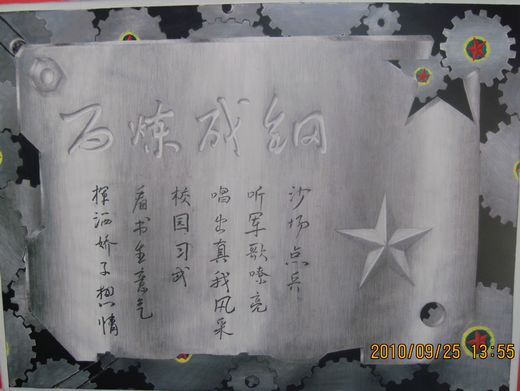 百炼成钢
沙场点兵
听军歌嘹亮
唱出真我风采
校园习武
看书生意气
挥洒娇子热情
2010/09/25 13:55